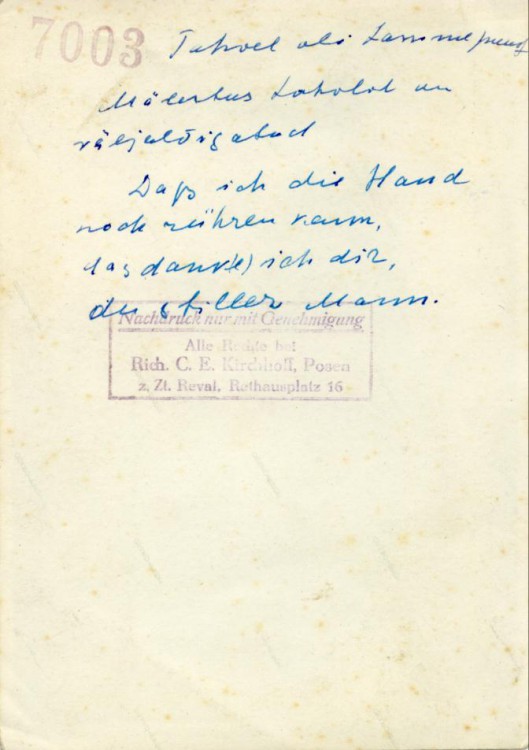 7003 Tahvel oli
Mälestus on
väljalõigatud
Daß ich die Hand
noch rühren kann,
das dank(e) ich dir,
du stiller Mann.
Nachdruck nur mit Genehmigung
Alle Rechte bei
Rich. C. E. Kirchhoff, Posen
z. Zt. Reval, Rathausplatz 16